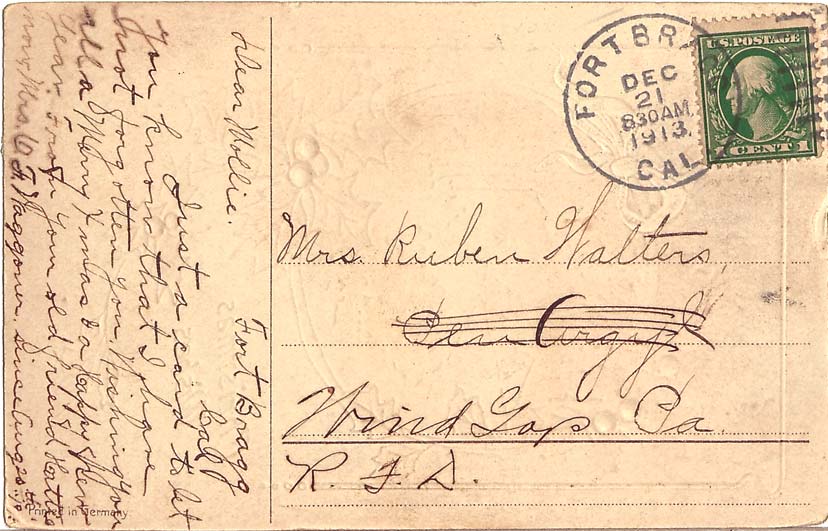 Fort Bragg
Cal
Dear Mollie.
Just a card to let
You know that I have
not forgotten you, Wishing you
all a Merry Xmas & a Happy New
Year From your old friend Hattie
now Mrs G. F. Waggoner, since Aug 20th
Printed in Germany
FORT BRA
DEC
21
830AM
1913
CAL
U.S. POSTAGE
1 CENT 1
Mrs. Ruben Walters,
Pen Argyl
Wind Gap Pa.
R. F. D.